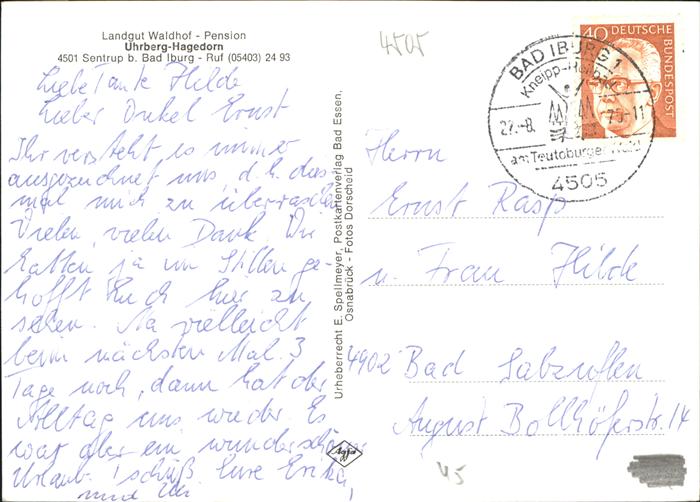 Landgut Waldhof - Pension
Uhrberg-Hagedorn
4501 Sentrup b. Bad Iburg - Ruf (05403) 24 93
4505
Liebe Tante Hilde
Lieber Onkel Ernst
Ihr versteht es immer
ausgezeichnet uns d.h. dies
mal mich zu überraschen
Vielen, vielen Dank. Wir
hatten ja im Stillen ge-
hofft Euch hier zu
sehen. Na vielleicht
beim nächsten Mal. 3
Tage noch, dann hat der
Alltag uns wieder. Es
war aber ein wunderschöner
Urlaub. Tschüß Eure Erika,
und
Urheberrecht E. Spellmeyer, Postkartenverlag Bad Essen,
Osnabrück - Fotos Dorscheid
Agfa
40 DEUTSCHE
BUNDESPOST
BAD IBURG 1
Kneipp-Heilbad
22.-8. 75-11
am Teutoburger Wald
4505
Herrn
Ernst Rasp
u. Frau Hilde
4902 Bad Salzuflen
August Bollhöferstr. 14
45